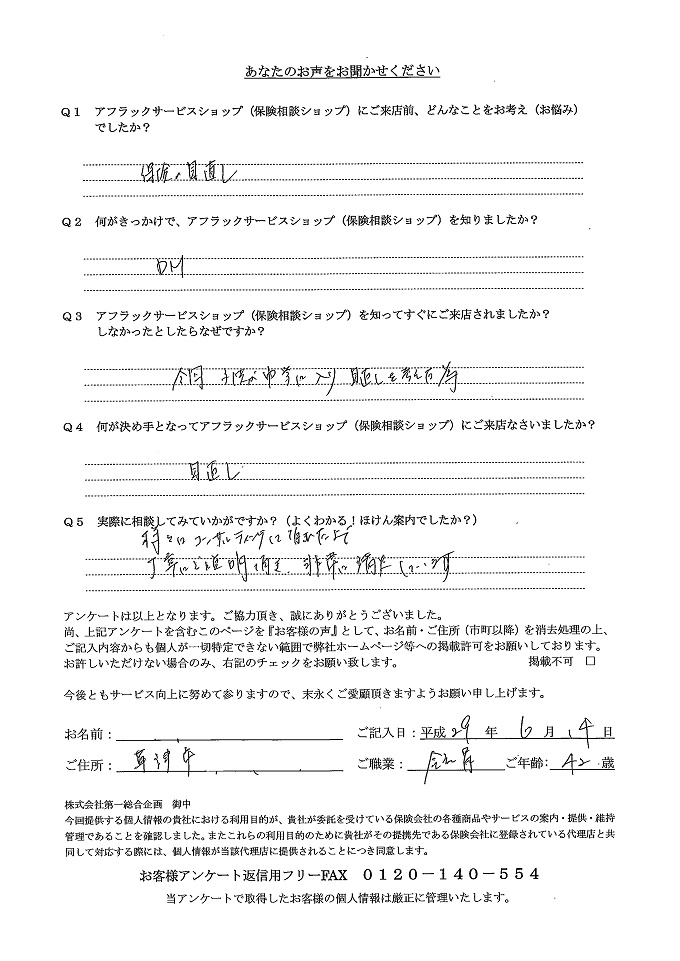 あなたのお声をお聞かせください
Q1 アフラックサービスショップ（保険相談ショップ）にご来店前、どんなことをお考え（お悩み）
でしたか？
保険の見直し
Q2 何がきっかけで、アフラックサービスショップ（保険相談ショップ）を知りましたか？
DM
Q3 アフラックサービスショップ（保険相談ショップ）を知ってすぐにご来店されましたか？
しなかったとしたらなぜですか？
今回 子供が中学に入り 見直しを考えた為
Q4 何が決め手となってアフラックサービスショップ（保険相談ショップ）にご来店なさいましたか？
見直し
Q5 実際に相談してみていかがですか？（よくわかる！ほけん案内でしたか？）
コンサルティングして頂いた上で
丁寧にご説明頂き 非常に満足しています
アンケートは以上となります。ご協力頂き、誠にありがとうございました。
尚、上記アンケートを含むこのページを『お客様の声』として、お名前・ご住所（市町以降）を消去処理の上、
ご記入内容からも個人が一切特定できない範囲で弊社ホームページ等への掲載許可をお願いしております。
お許しいただけない場合のみ、右記のチェックをお願い致します。 掲載不可 □
今後ともサービス向上に努めて参りますので、末永くご愛顧頂きますようお願い申し上げます。
お名前： ご記入日：平成29年 6月14日
ご住所：草津市 ご職業：会社員 ご年齢：42歳
株式会社第一総合企画 御中
今回提供する個人情報の貴社における利用目的が、貴社が委託を受けている保険会社の各種商品やサービスの案内・提供・維持
管理であることを確認しました。またこれらの利用目的のために貴社がその提携先である保険会社に登録されている代理店と共
同して対応する際には、個人情報が当該代理店に提供されることにつき同意します。
お客様アンケート返信用フリーFAX 0120－140－554
当アンケートで取得したお客様の個人情報は厳正に管理いたします。